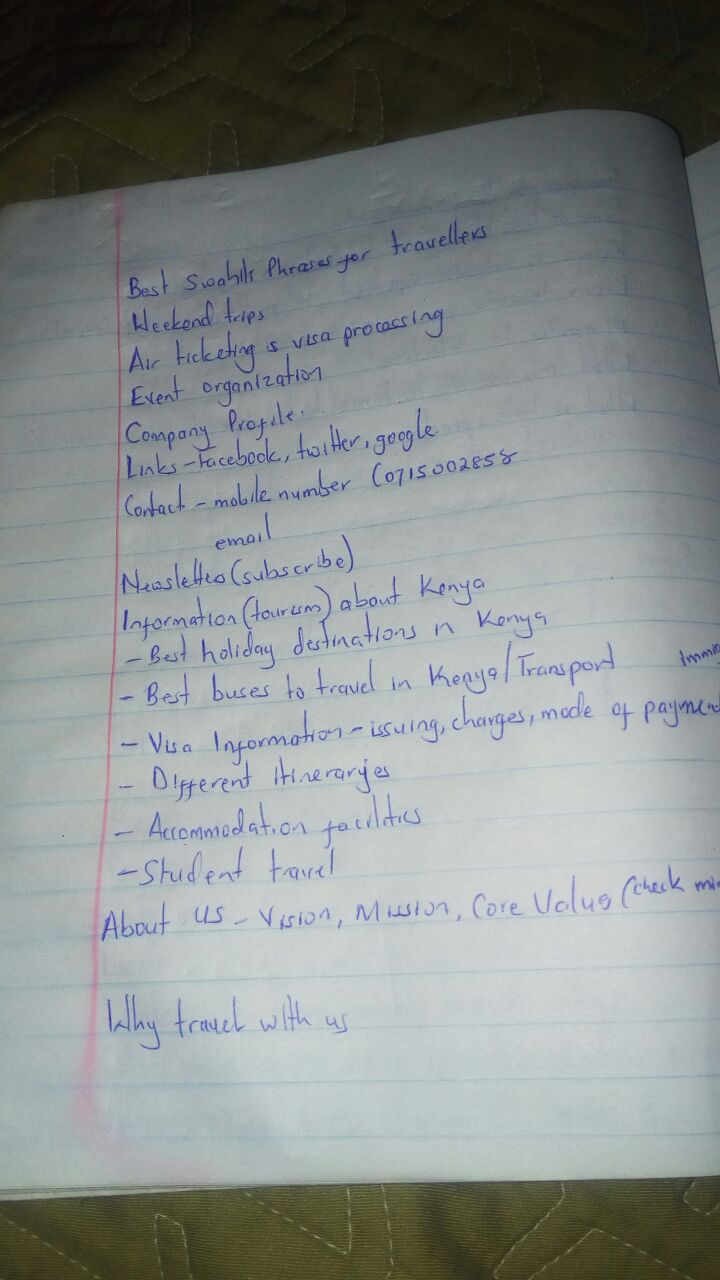 Best Swahili Phrases for travellers
Weekend trips
Air ticketing & visa processing
Event organization
Company Profile.
Links - Facebook, twitter, google
Contact - mobile number (0715002858
email
Newsletter (subscribe)
Information (tourism) about Kenya
- Best holiday destinations in Kenya
- Best buses to travel in Kenya/Transport
- Visa Information - issuing, charges, mode of payment
- Different itineraries
- Accommodation facilities
- Student travel
About us - Vision, Mission, Core Value (check
Why travel with us